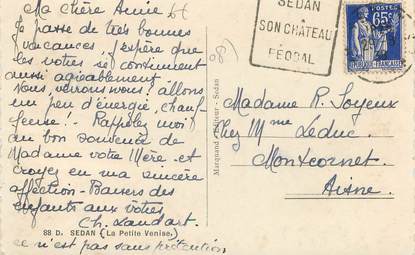 Ma chère Annie
Je passe de très bonnes
vacances, j'espère que
les votres se continuent
aussi agréablement
Nous verrons nous? allons
un peu d'énergie, chauf-
feuse! - Rappelez moi
au bon souvenir de
Madame votre Mère et
croyez en ma sincère
affection - Baisers des
enfants aux vôtres
Ch. Landart
88 D. SEDAN (La Petite Venise)
ce n'est pas sans prétention
Marquand - Editeur - Sedan
SEDAN
SON CHÂTEAU
FÉODAL
POSTES
65c
REPUBLIQUE FRANÇAISE
Madame R. Soyeux
Chez Mme Leduc
Montcornet
Aisne